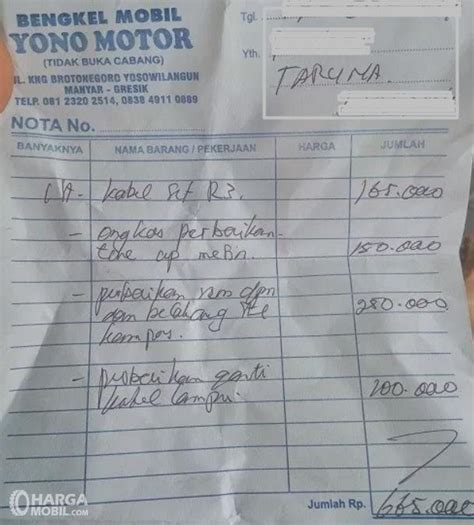 BENGKEL MOBIL
YONO MOTOR
(TIDAK BUKA CABANG)
JL. KNG BROTONEGORO YOSOWILANGUN
MANYAR - GRESIK
TELP. 081 2320 2514, 0838 4911 0889
Tgl.
Yth.
TARUNA.
NOTA No.
BANYAKNYA NAMA BARANG / PEKERJAAN HARGA JUMLAH
kabel set R3. 165.000
- ongkos perbaikan
tune up mesin. 150.000
- perbaikan rem dpn
dan belakang stel 250.000
kampas.
- perbaikan ganti
kabel lampu. 100.000
Jumlah Rp. 665.000
OHARGA
MOBIL.com